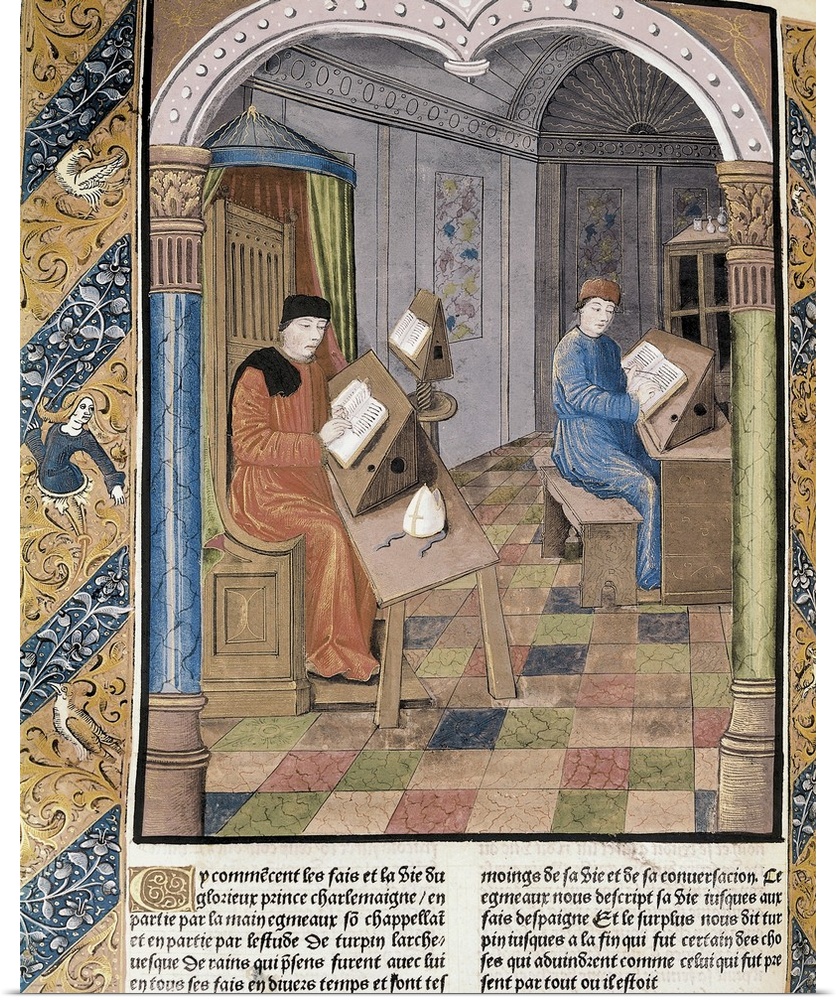 Cy commēcent les fais et la vie du
glorieux prince charlemaigne / en
partie par la main egmeaux sō chappellaī
et en partie par lestude de turpin larche⸗
uesque de rains qui p̄sens furent auec lui
en tous ses fais en diuers temps et sont tes
moings de sa vie et de sa conuersacion. Ce
egmeaux nous descript sa vie iusques aux
fais despaigne Et le surplus nous dit tur
pin iusques a la fin qui fut certain des cho
ses qui aduindrent comme celui qui fut pre
sent par tout ou il estoit